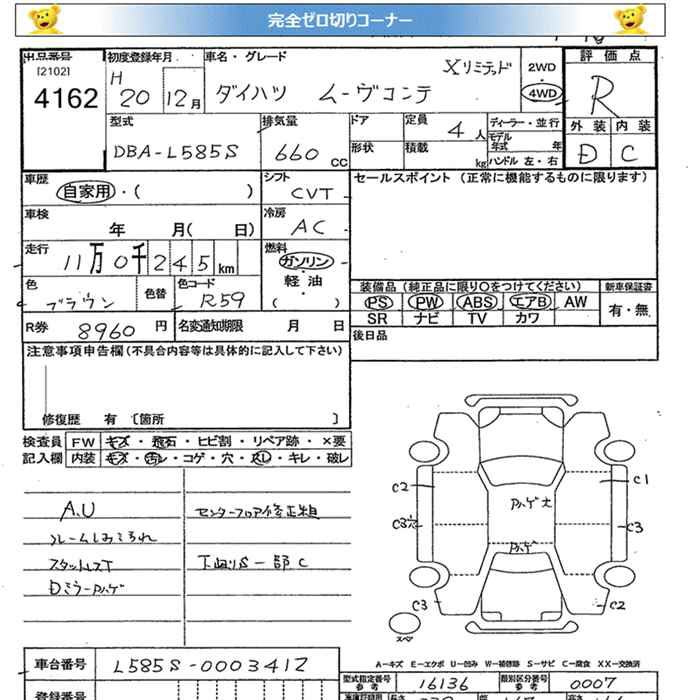 完全ゼロ切りコーナー
出品番号 初度登録年月 車名・グレード 評価点
[2102] H Xリミテッド 2WD
4162 20 12月 ダイハツ ムーヴコンテ ・ R
4WD
型式 排気量 ドア 定員 4人 ディーラー・並行 外装 内装
DBA-L585S 660 cc 形状 積載 kg モデル年式 年 D C
ハンドル 左・右
車歴 自家用・( ) シフト CVT セールスポイント (正常に機能するものに限ります)
車検 年 月( 日) 冷房 AC
走行 11万0千245km 燃料 ガソリン・軽油・( )
色 ブラウン 色替 色コード R59 装備品 (純正品に限り○をつけてください) 新車保証書
PS PW ABS エアB AW 有・無
SR ナビ TV カワ
R券 8960円 名変通知期限 月 日 後日品
注意事項申告欄(不具合内容等は具体的に記入して下さい)
修復歴 有 〔箇所 〕
検査員 FW キズ・飛石・ヒビ割・リペア跡・×要
記入欄 内装 キズ・汚レ・コゲ・穴・スレ・キレ・破レ
A.U センターフロア修正粗
ルームしみよごれ
スタットレス下 下廻りS一部C
Dミラーハゲ
C2 C1
ハゲ大
C3 C3
ハゲ
C3 C2
スペア
A-キズ E-エクボ U-凹み W-補修跡 S-サビ C-腐食 XX-交換済
車台番号 L585S-0003412
型式指定番号 参考 16136 類別区分番号 参考 0007
登録番号